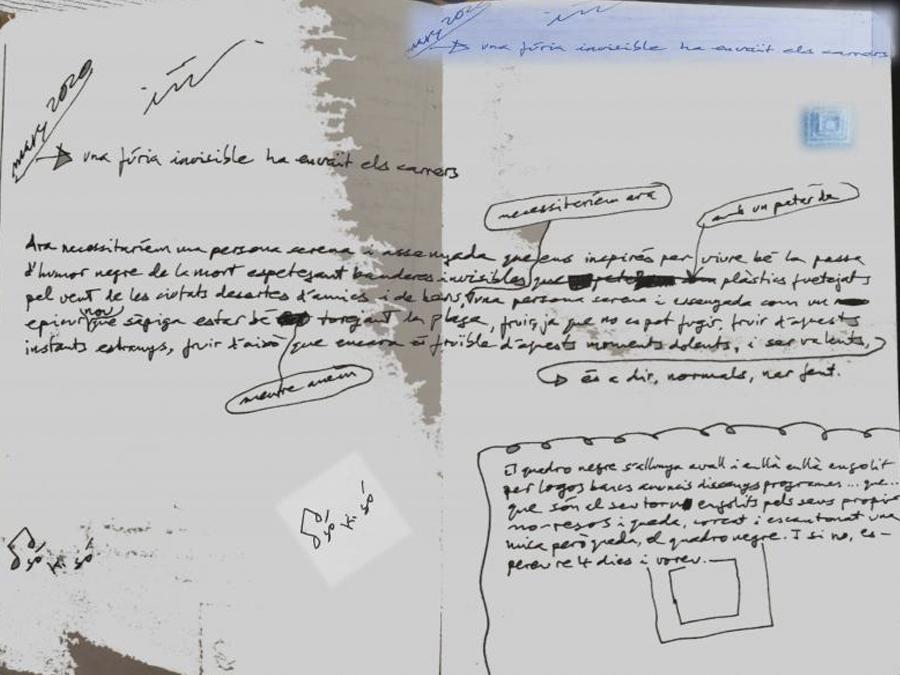 març 2020
una fúria invisible ha envaït els carrers
març 2020
una fúria invisible ha envaït els carrers
necessitaríem ara
amb un petar de
Ara necessitaríem una persona serena i assenyada que ens inspirés per viure bé la passa
d'humor negre de la mort espetegant banderes invisibles que plàstics fuetejats
pel vent de les ciutats desertes d'amics i de bars, una persona serena i assenyada com un
epicuri nou que sàpiga estar bé torejant la plaça, fruir, ja que no es pot fugir, fruir d'aquests
instants estranys, fruir d'això que encara és fruïble d'aquests moments dolents, i ser valents,
és a dir, normals, nar fent.
mentre anem
El quadro negre s'allunya avall i enllà enllà engolit
per logos bancs anuncis disseny programes... que...
que són el seu torn engolits pels seus propis
no-resos i queda, corcat i escantonat una
mica però queda, el quadro negre. I si no, es-
pereu re 4 dies i voreu.
só ki só
só ki só